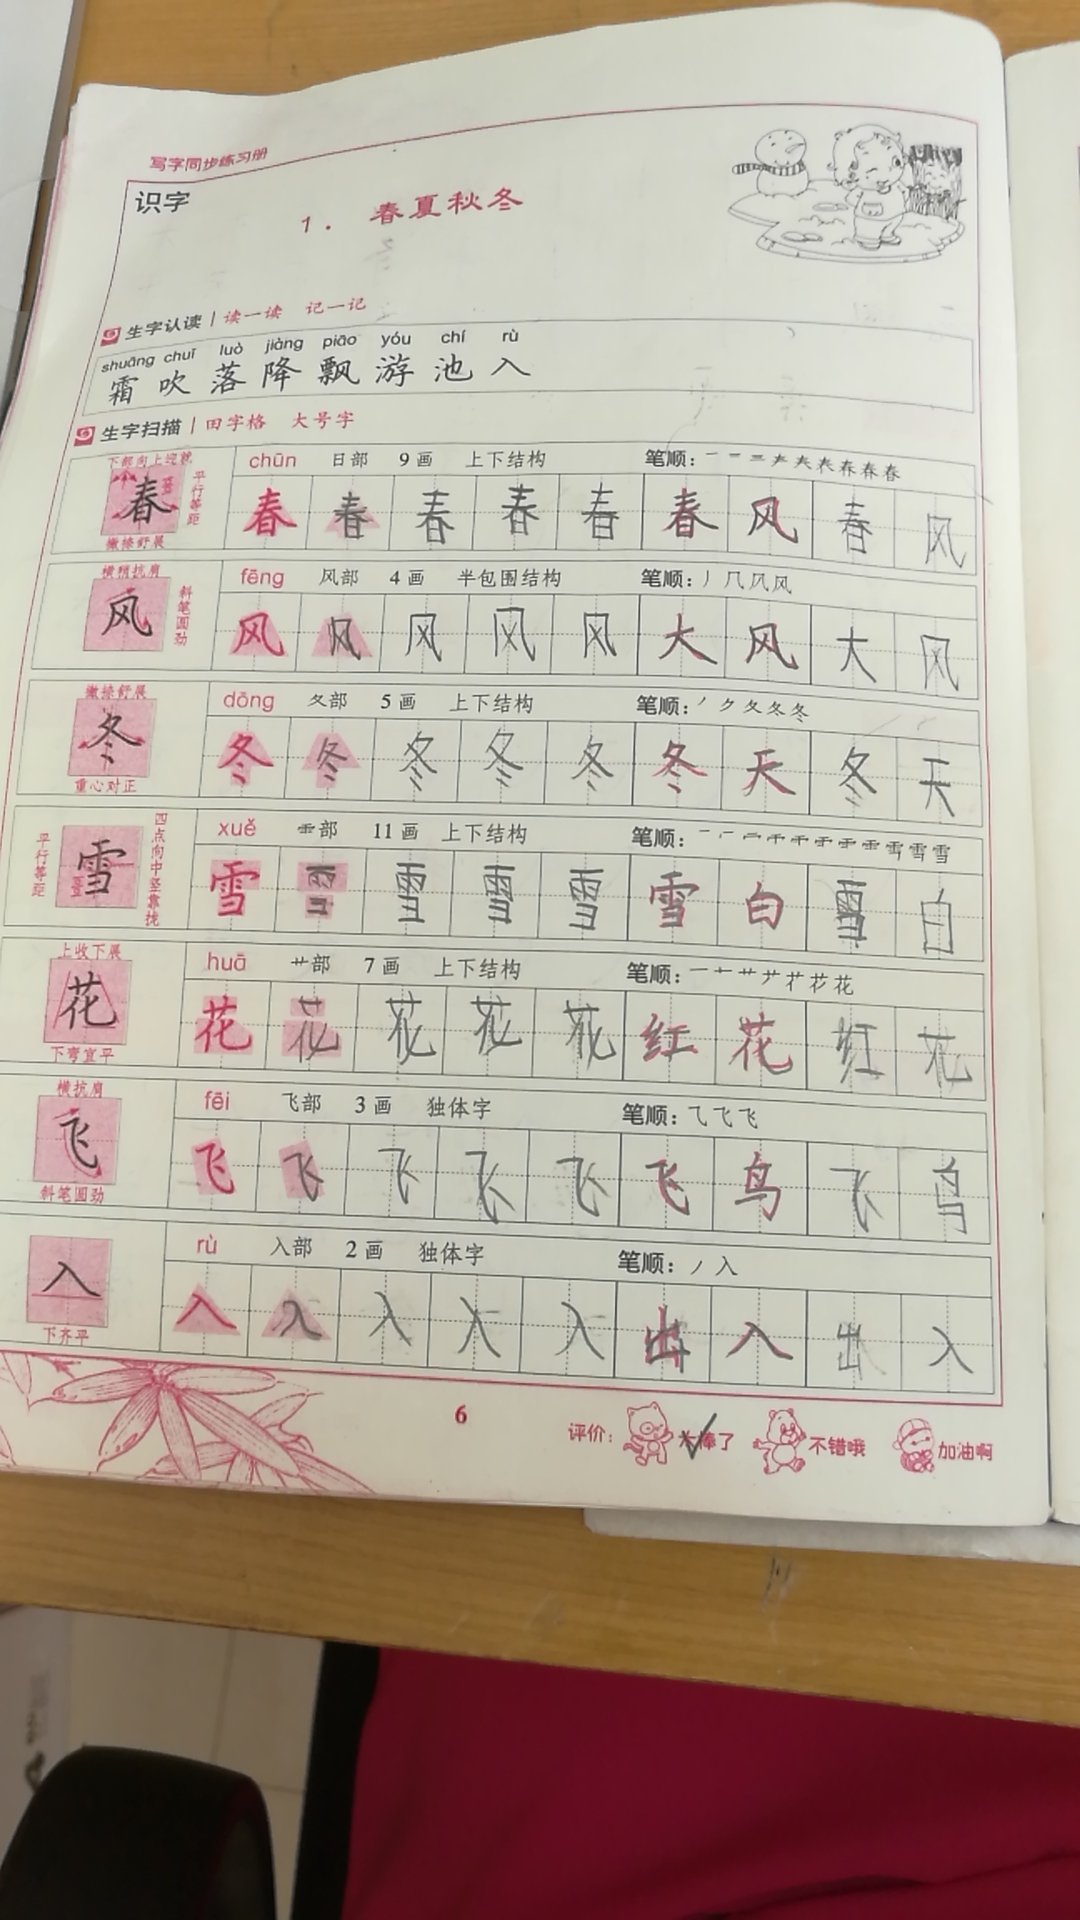 写字同步练习册
识字
1. 春夏秋冬
生字认读 读一读 记一记
shuāng chuī luò jiàng piāo yóu chí rù
霜 吹 落 降 飘 游 池 入
生字扫描 田字格 大号字
下部向上迎就
春
平行等距
撇捺舒展
chūn 日部 9画 上下结构 笔顺：
春 春 春 春 春 春 风 春 风
横稍抗肩
风
斜笔圆劲
fēng 风部 4画 半包围结构 笔顺：
风 风 风 风 风 大 风 大 风
撇捺舒展
冬
重心对正
dōng 夂部 5画 上下结构 笔顺：
冬 冬 冬 冬 冬 冬 天 冬 天
平行等距
雪
四点向中竖靠拢
xuě 部 11画 上下结构 笔顺：
雪 雪 雪 雪 雪 雪 白 雪 白
上收下展
花
下弯宜平
huā 艹部 7画 上下结构 笔顺：
花 花 花 花 花 红 花 红 花
横抗肩
飞
斜笔圆劲
fēi 飞部 3画 独体字 笔顺：
飞 飞 飞 飞 飞 飞 鸟 飞 鸟
入
下齐平
rù 入部 2画 独体字 笔顺：丿入
入 入 入 入 入 出 入 出 入
6
评价： 太棒了 不错哦 加油啊